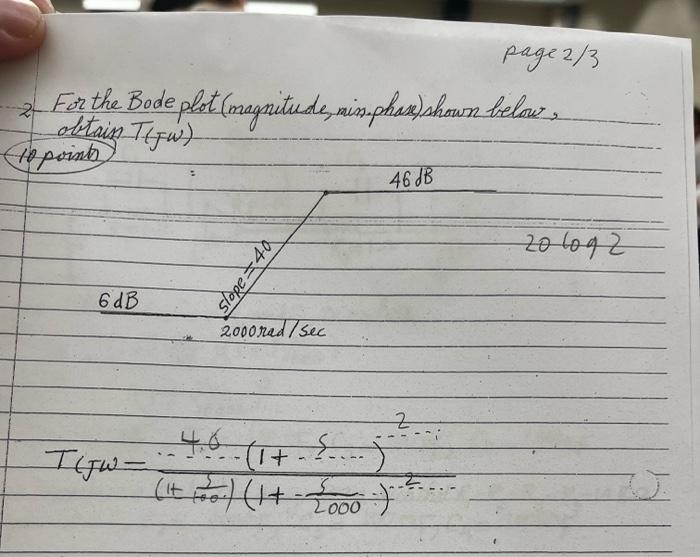 page 2/3
2 For the Bode plot (magnitude, min. phase) shown below,
obtain T(jw)
10 points
46 dB
20 log 2
slope = 40
6 dB
2000 rad/sec
2
T(jw = (1+ s )
(1+ s ) (1+ s 2
2000 )